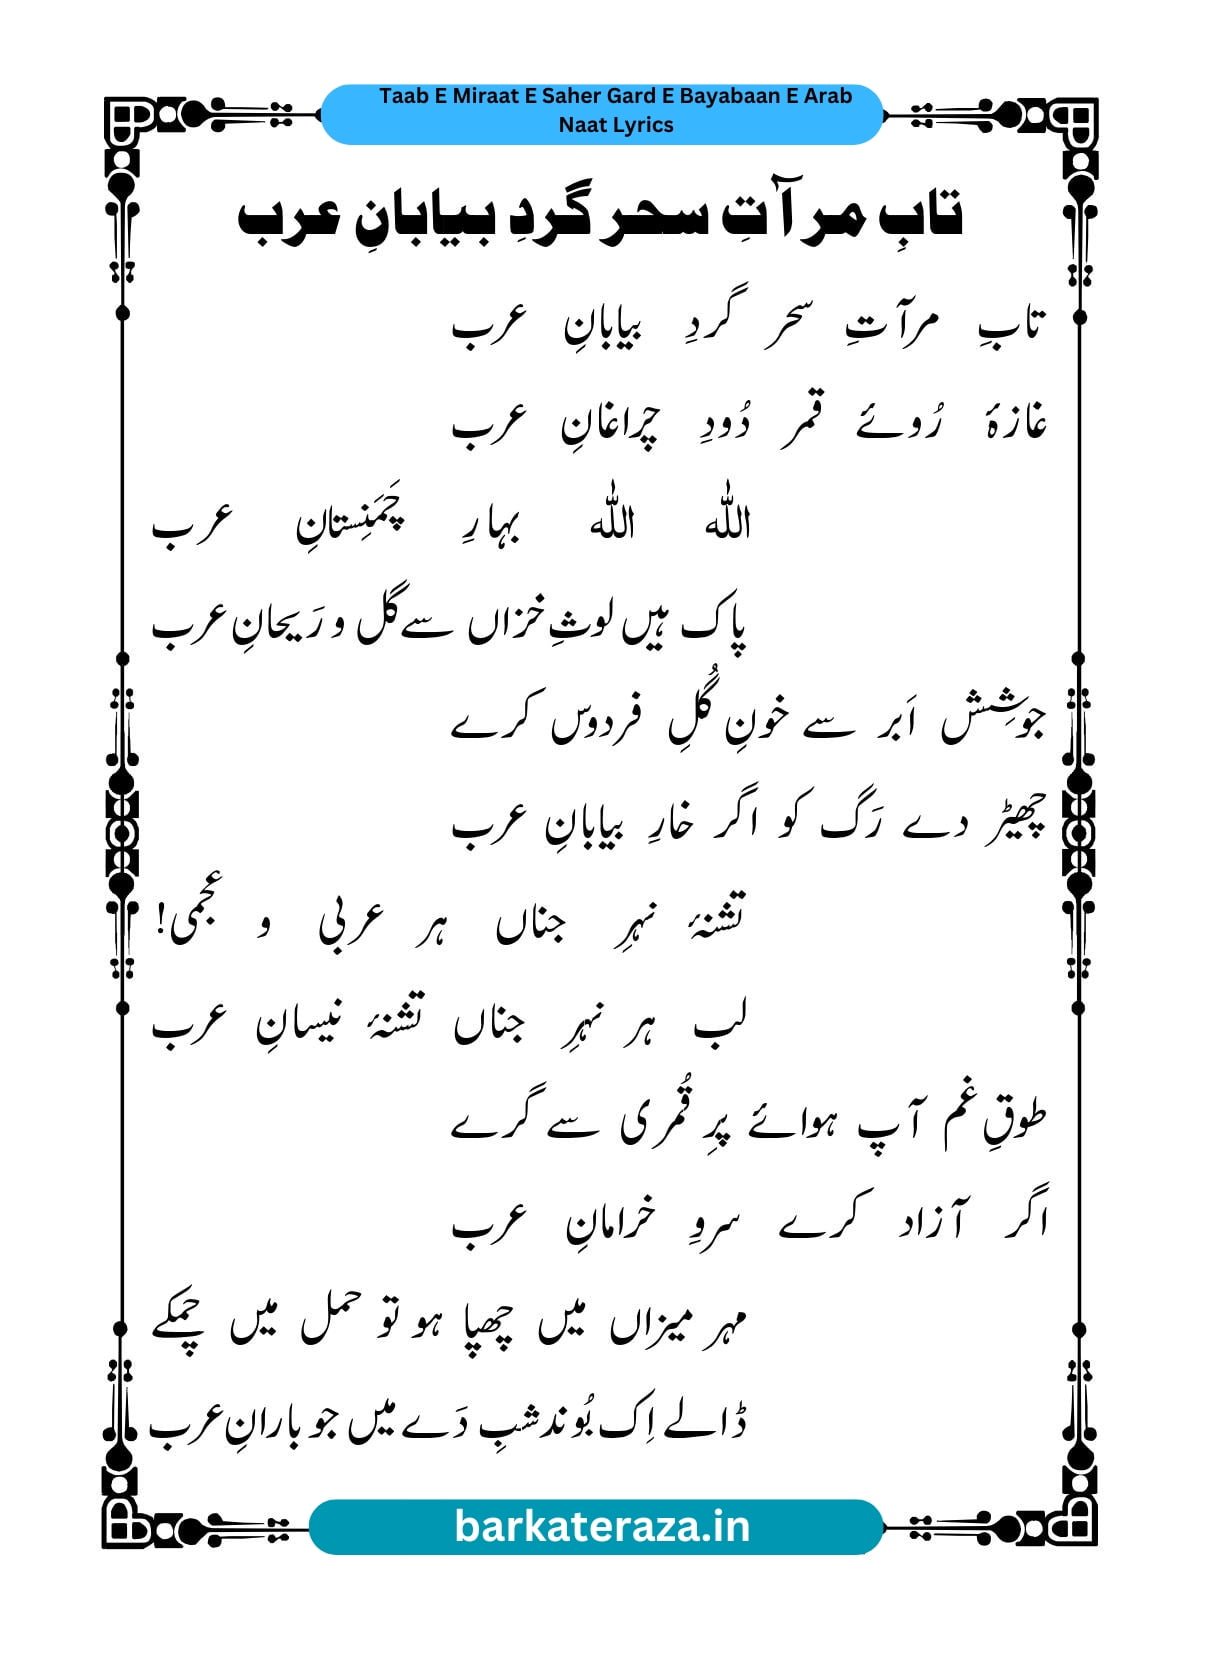 Taab E Miraat E Saher Gard E Bayabaan E Arab
Naat Lyrics
تابِ مرآتِ سحر گردِ بیابانِ عرب
تابِ مرآتِ سحر گردِ بیابانِ عرب
غازۂ رُوئے قمر دُودِ چراغانِ عرب
اللہ اللہ بہارِ چَمَنِستانِ عرب
پاک ہیں لوثِ خزاں سے گل و رَیحانِ عرب
جوشِش اَبر سے خونِ گُلِ فردوس کرے
چھیڑ دے رَگ کو اگر خارِ بیابانِ عرب
تشنۂ نہرِ جناں ہر عربی و عجمی!
لب ہر نہرِ جناں تشنۂ نیسانِ عرب
طوقِ غم آپ ہوائے پرِ قُمری سے گرے
اگر آزاد کرے سروِ خرامانِ عرب
مہر میزاں میں چھپا ہو تو حمل میں چمکے
ڈالے اِک بُوند شبِ دَے میں جو بارانِ عرب
barkateraza.in